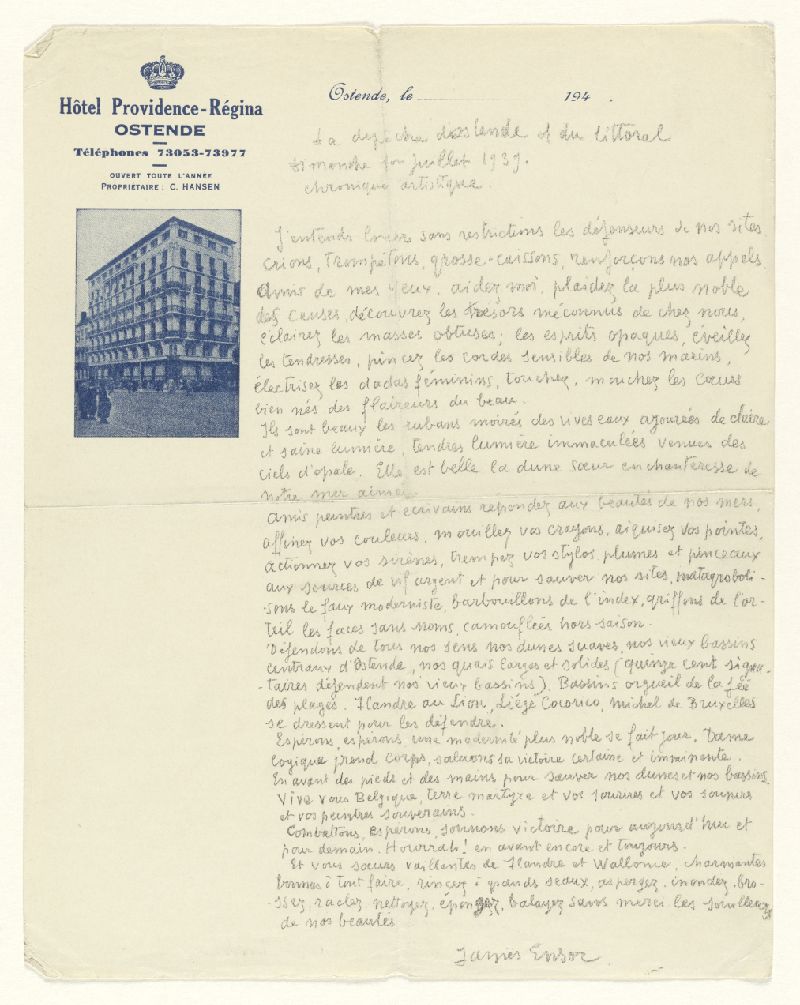 Hôtel Providence-Régina
OSTENDE
Téléphones 73053-73977
OUVERT TOUTE L'ANNÉE
PROPRIÉTAIRE: C. HANSEN
Ostende, le 194 .
La dépêche d'ostende et du littoral
Dimanche juillet 1939.
chronique artistique.
J'entends louer sans restrictions les défenseurs de nos sites,
crions, trompétons, grosse-caissons, renforçons nos appels.
Amis de mes yeux, aidez moi, plaidez la plus noble
des causes, découvrez les trésors méconnus de chez nous,
éclairez les masses obtuses; les esprits opaques, éveillez
les tendresses, pincez les cordes sensibles de nos marins,
électrisez les dadas féminins, touchez, mouchez les cœurs
bien nés des flaireurs du beau.
Ils sont beaux les rubans moirés des vives eaux azurées de claire
et saine lumière, tendres lumière immaculées venues des
ciels d'opale. Elle est belle la dune sœur enchanteresse de
notre mer aimée.
Amis peintres et écrivains répondez aux beautés de nos mers,
affinez vos couleurs, mouillez vos crayons, aiguisez vos pointes,
actionnez vos sirènes, trempez vos stylos, plumes et pinceaux
aux sources de vif argent et pour sauver nos sites, matagroboli-
-sons le faux moderniste, barbouillons de l'index, griffons de l'or-
-teil les faces sans noms, camouflées hors-saison.
Défendons de tous nos sens nos dunes suaves, nos vieux bassins
centraux d'Ostende, nos quais larges et solides (quinze cent signa-
-taires défendent nos vieux bassins). Bassins orgueil de la fée
des plages. Flandre au Lion, Liége Cocorico, Michel de Bruxelles
se dressent pour les défendre.
Espérons, espérons, une modernité plus noble se fait jour. Dame
Logique prend corps, saluons sa victoire certaine et imminente.
En avant des pieds et des mains pour sauver nos dunes et nos bassins.
Vive vous Belgique, terre martyre et vos sources et vos
et vos peintres souverains.
Combattons, espérons, sonnons victoire pour aujourd'hui et
pour demain. Hourrah! en avant encore et toujours.
Et vous sœurs vaillantes de Flandre et Wallonie, charmantes
bonnes à tout faire, rincez à grands seaux, aspergez, inondez, bro-
-ssez, raclez, nettoyez, épongez, balayez sans merci les souilleurs
de nos beautés
James Ensor